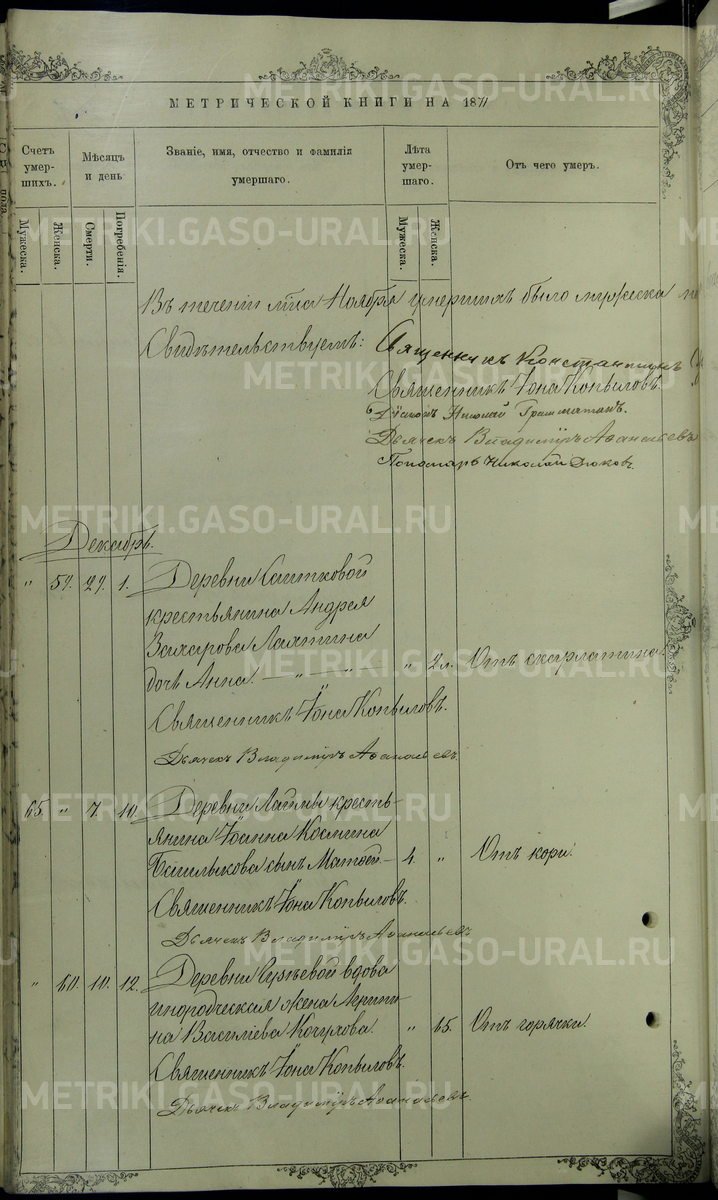 МЕТРИЧЕСКОЙ КНИГИ НА 1871
Счетъ умер-шихъ.
Мѣсяцъ и день
Званіе, имя, отчество и фамилія
умершаго.
Лѣта умер-шаго.
Отъ чего умеръ.
Мужеска.
Женска.
Смерти.
Погребенія.
Мужеска.
Женска.
Въ теченіи м͠ца Ноября умершихъ было мужеска по
Свидѣтельствуемъ: Священникъ Константинъ
Священникъ Іона Копыловъ.
Діаконъ Николай Грамматинъ.
Дьячекъ Владиміръ Аѳанасьевъ
Пономарь Николай Дюковъ.
Декабрь.
" 59. 29. 1. Деревни Саитковой
крестьянина Андрея
Захарова Лаптина
дочь Анна. — " — " — " 2 л. Отъ скарлатины
Священникъ Іона Копыловъ.
Дьячекъ Владиміръ Аѳанасьевъ.
65. " 7. 10. Деревни кресть-
янина Іоанна Космина
сынъ Матѳей. — 4. " Отъ кори.
Священникъ Іона Копыловъ.
Дьячекъ Владиміръ Аѳанасьевъ
" 60. 10. 12. Деревни вдова
инородческая жена
на Василіева " 65. Отъ горячки.
Священникъ Іона Копыловъ.
Дьячекъ Владиміръ Аѳанасьевъ.
METRIKI.GASO-URAL.RU